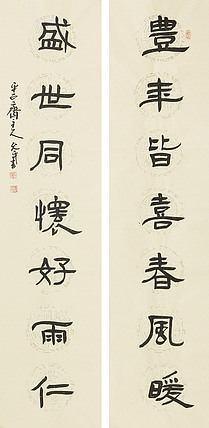 豐年皆喜春風暖
盛世同懷好雨仁